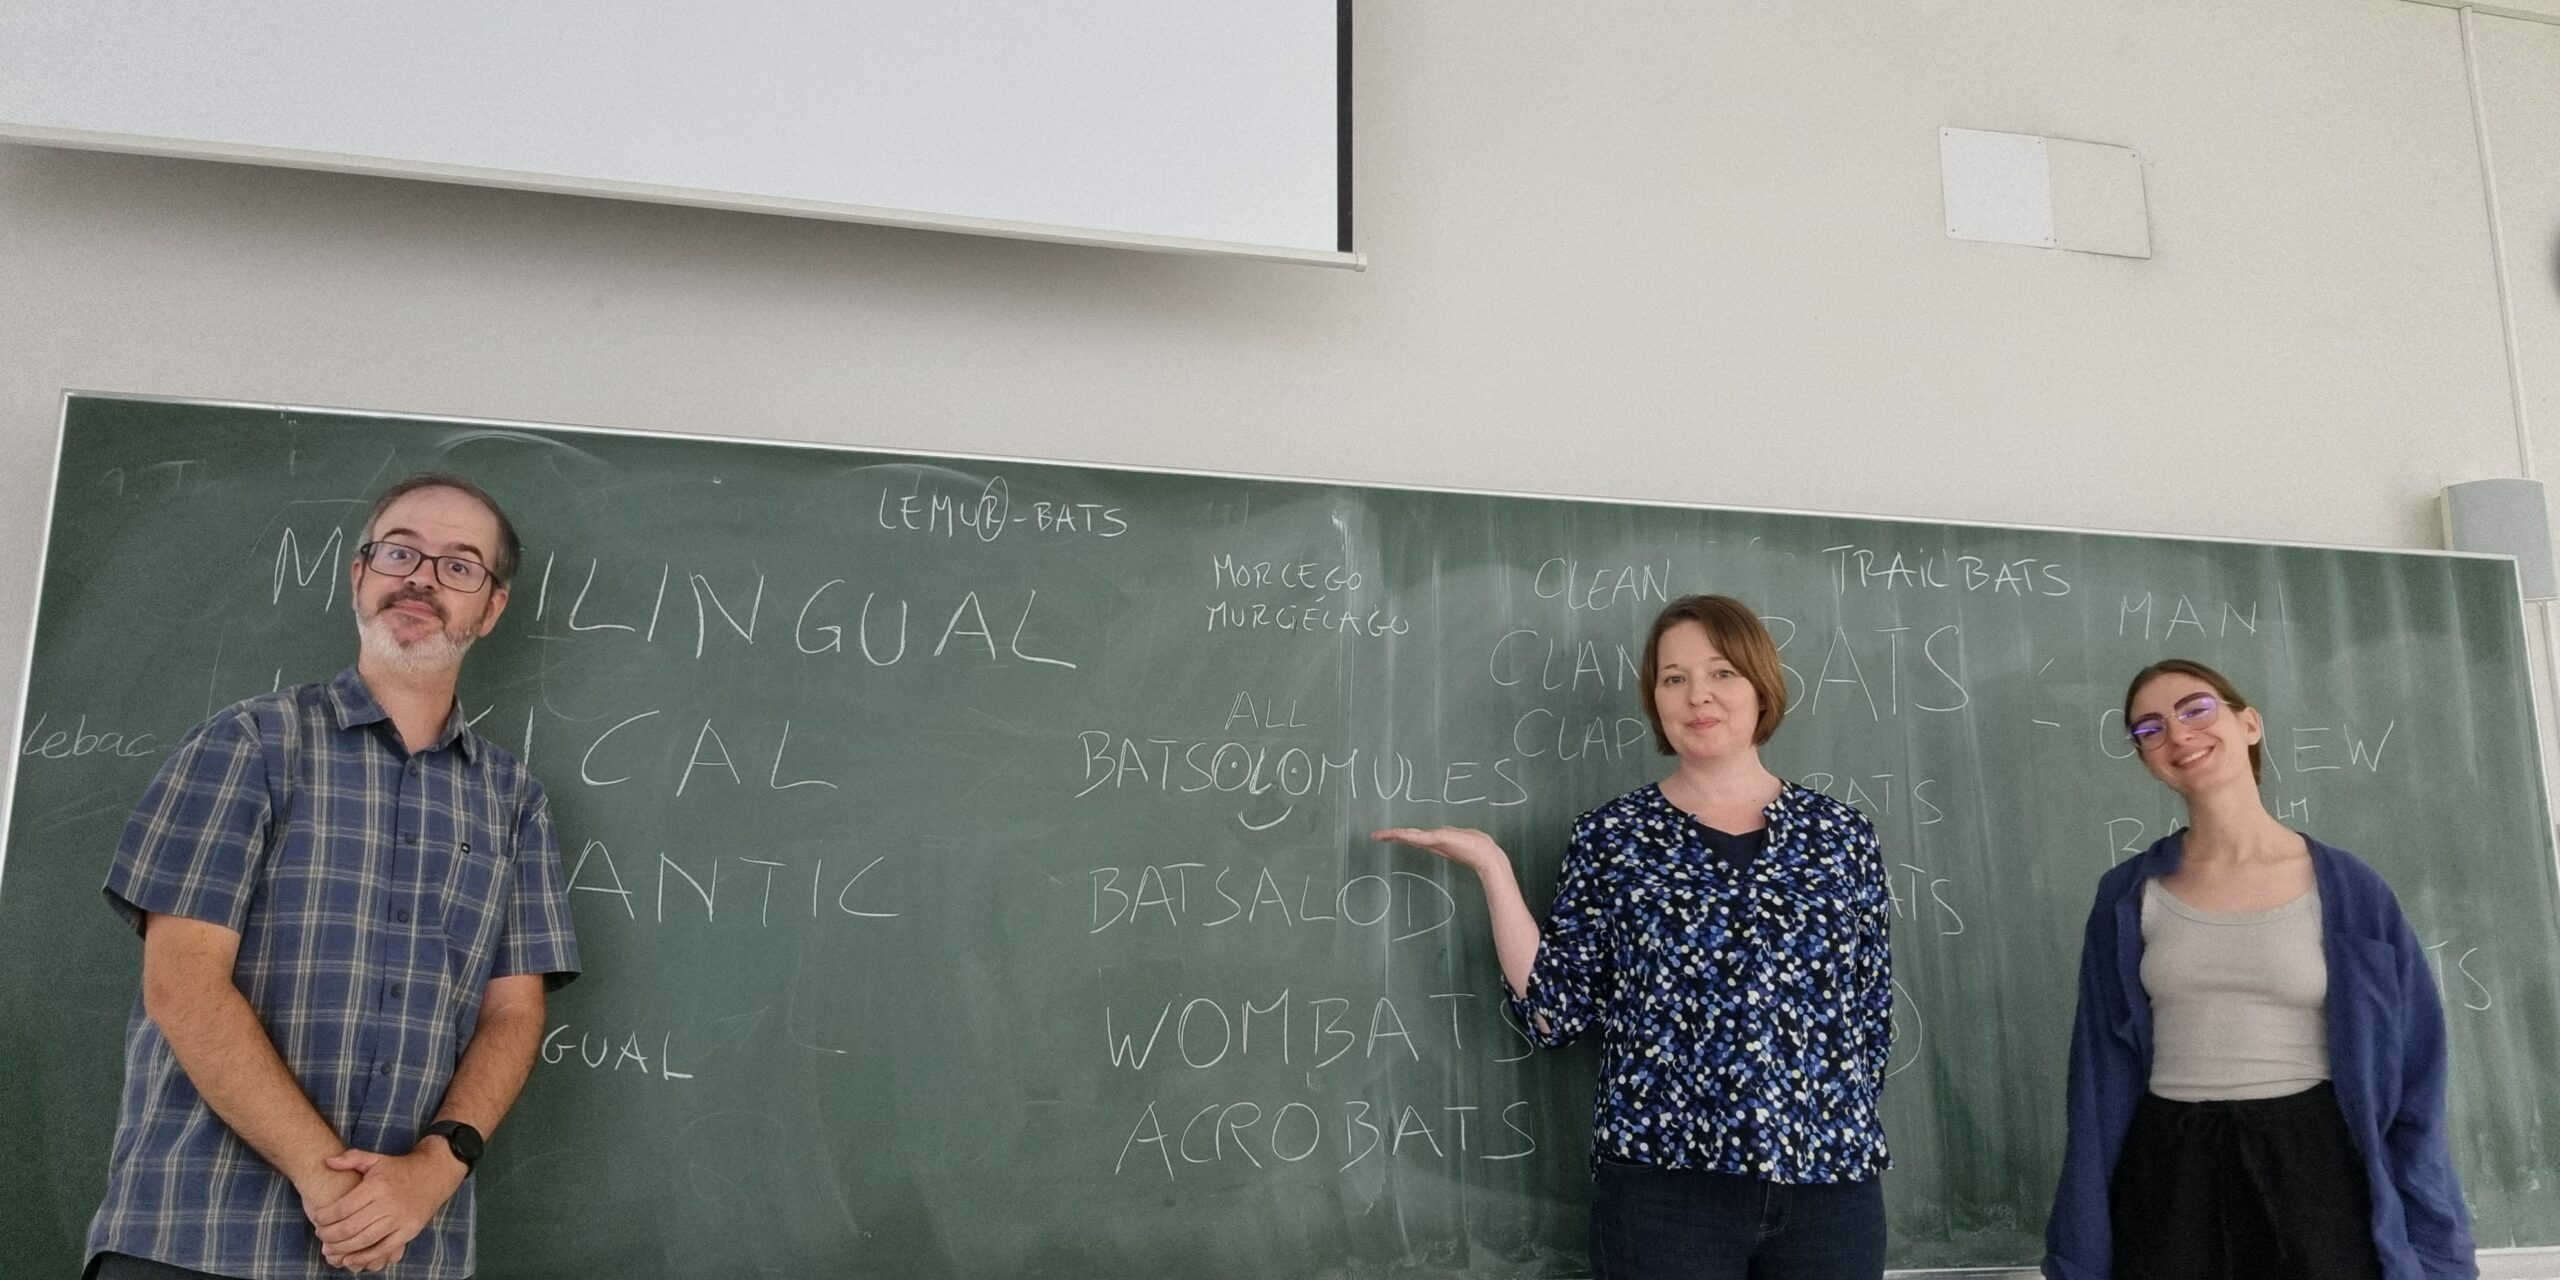 LEMUR-BATS
ILINGUAL
ICAL
ANTIC
GUAL
MORCEGO
MURCIÉLAGO
ALL
BATSOLOMULES
BATSALOD
WOMBATS
ACROBATS
CLEAN
CLAN BATS
CLAP
BATS
ATS
TRAIL BATS
MAN
EW
LM
TS